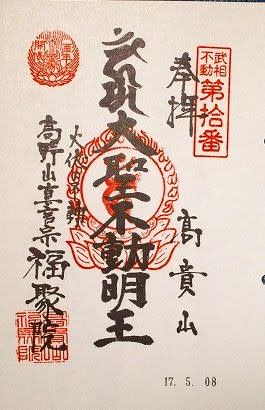 武相
不動
第拾番
奉拝
髙貴山
大聖不動明王
高野山真言宗
福聚院
17. 5. 08